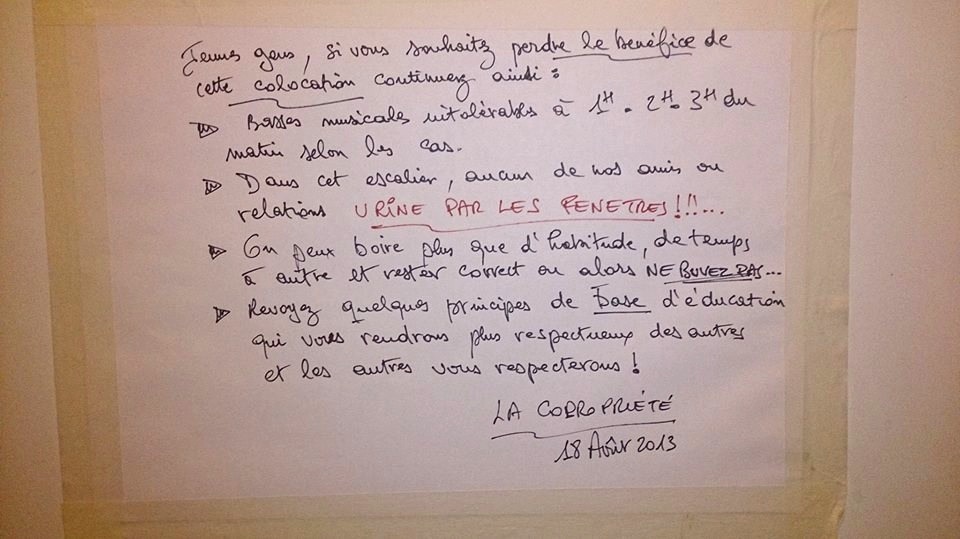 Jeunes gens, si vous souhaitez perdre le bénéfice de
cette colocation continuez ainsi :
Basses musicales intolérables à 1H. 2H. 3H du
matin selon les cas.
Dans cet escalier, aucun de nos amis ou
relations URINE PAR LES FENETRES!!!...
On peux boire plus que d'habitude, de temps
à autre et rester correct ou alors NE BUVEZ PAS...
Revoyez quelques principes de base d'éducation
qui vous rendrons plus respectueux des autres
et les autres vous respecterons !
LA COPROPRIÉTÉ
18 Août 2013